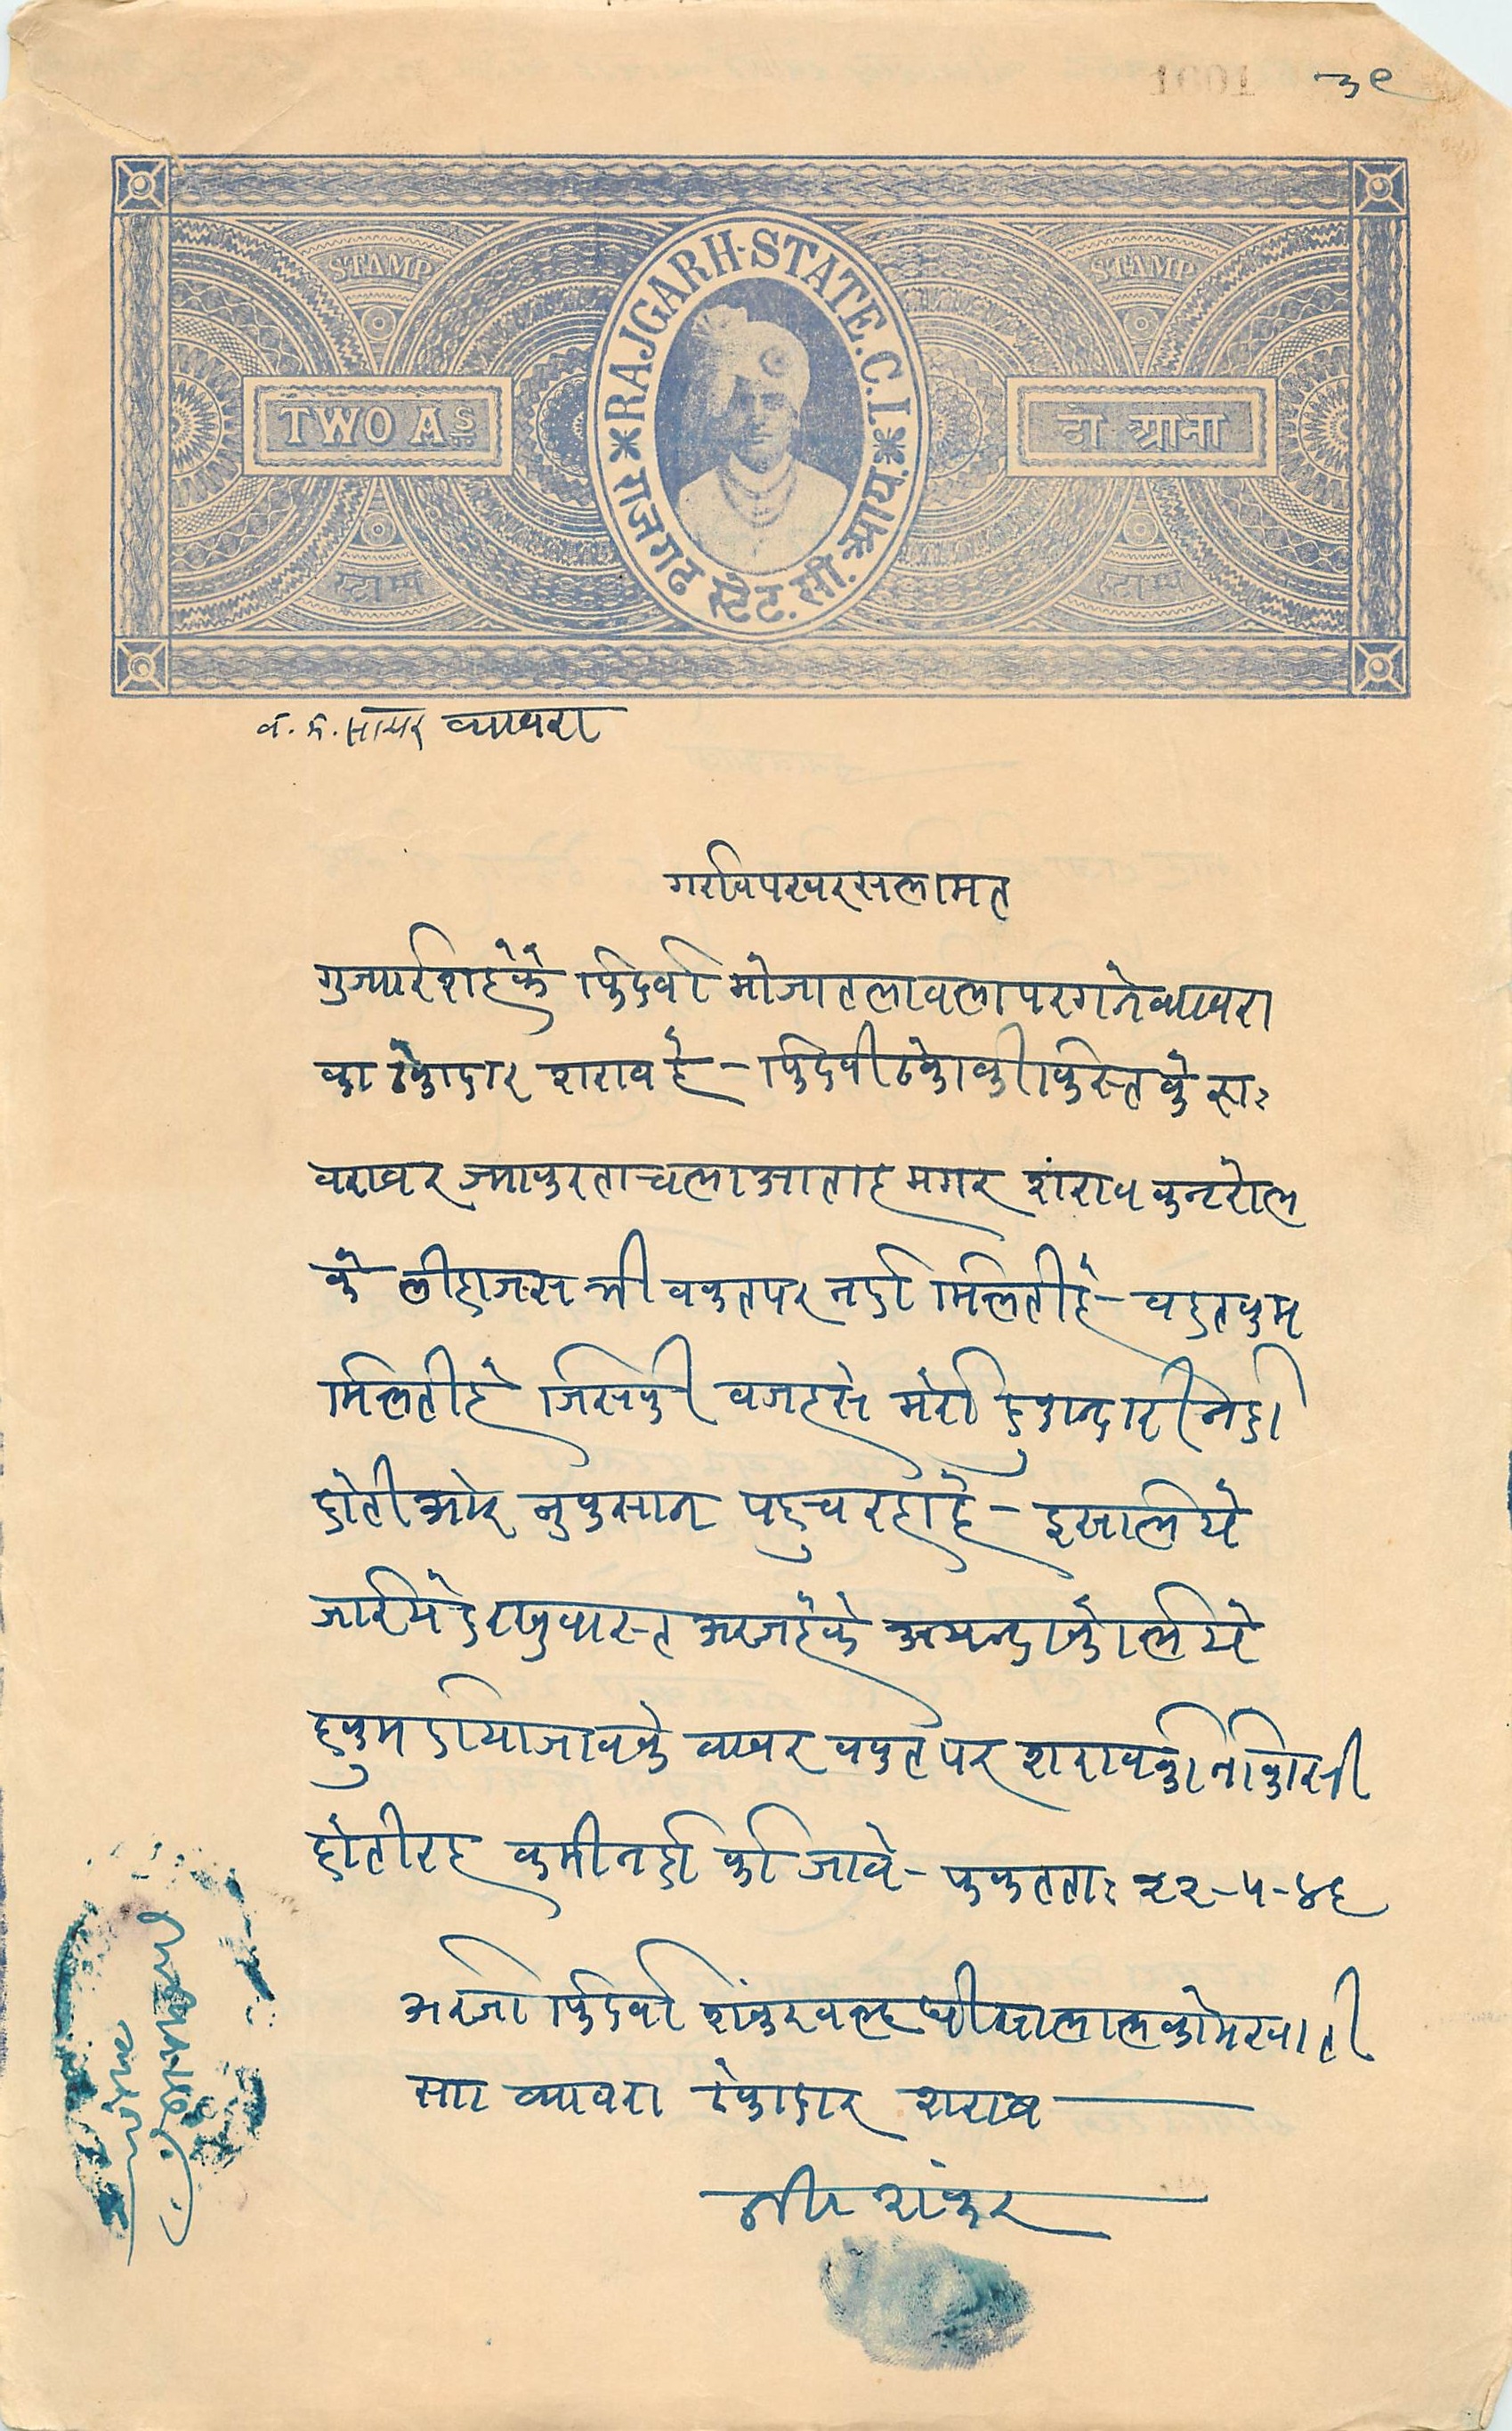 1001
३९
STAMP STAMP
RAJGARH-STATE.C.I
TWO AS
दो आना
राजगढ स्टेट. सी. आय
स्टाम्प स्टाम्प
सायर व्यावरा
गरीवपरवर सलामत
गुजारिश हेके फिदवी मोजा तलावला परगने व्यावरा
का ठेकादार शराव हे - फिदवी ठेका की किस्त के रु:
वरावर जमा करता चला आताह मगर शंराव कन्टरोल
के लीहाजस भी वकत पर नही मिलती हे - वहत कम
मिलती हे जिसकी वजहसे मेरी दुकानदारी नही
होती ओर नुकसान पहुच रहा हे - इसलिये
जरिये दरखुवास्त अरज हेके अयन्दा के लिये
हुकुम दीया जावके वावर वकत पर शराव की नीकासी
होती रह कमी नही की जावे - फकत ता: २२-५-४६
अरजी फिदवी शंकर वल्द घीसालाल कोम खाती
सा: व्यावरा ठेकादार शराव
नी॰ शंकर